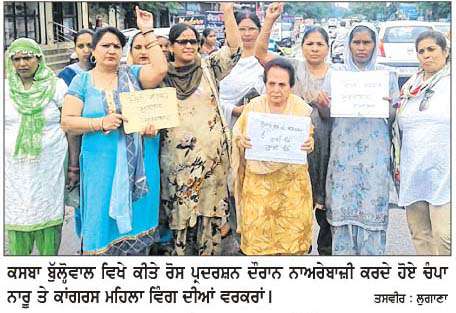 ਕਸਬਾ ਬੁੱਲ੍ਹੋਵਾਲ ਵਿਖੇ ਕੀਤੇ ਰੋਸ ਪ੍ਰਦਰਸ਼ਨ ਦੌਰਾਨ ਨਾਅਰੇਬਾਜ਼ੀ ਕਰਦੇ ਹੋਏ ਚੰਪਾ
ਨਾਰੂ ਤੇ ਕਾਂਗਰਸ ਮਹਿਲਾ ਵਿੰਗ ਦੀਆਂ ਵਰਕਰਾਂ। ਤਸਵੀਰ : ਲੁਗਾਣਾ